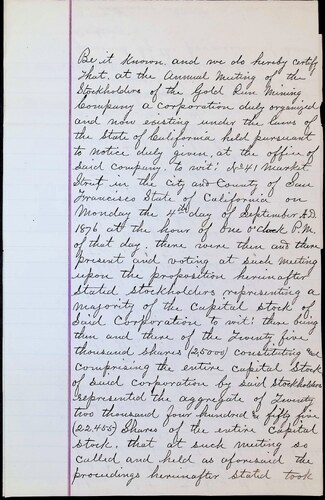 Be it Known, and we do hereby certify
That, at the Annual Meeting of the
Stockholders of the Gold Run Mining
Company a corporation duly organized
and now existing under the laws of
the State of California held pursuant
to notice duly given, at the office of
said company. to wit: No 41 Market
Street in the City and County of San
Francisco State of California on
Monday the 4th day of September A.D.
1876 at the hour of One O'Clock P.M.
of that day, there were then and there
present and voting at such meeting
upon the proposition hereinafter
stated stockholders representing a
majority of the Capital stock of
said Corporation to wit: there being
then and there of the Twenty five
thousand shares (25,000) constituting and
comprising the entire capital Stock
of said corporation by said Stockholders
represented the aggregate of Twenty
two thousand four hundred & fifty five
(22.455) Shares of the entire capital
stock, that at such meeting so
called and held as aforesaid the
proceedings hereinafter stated took